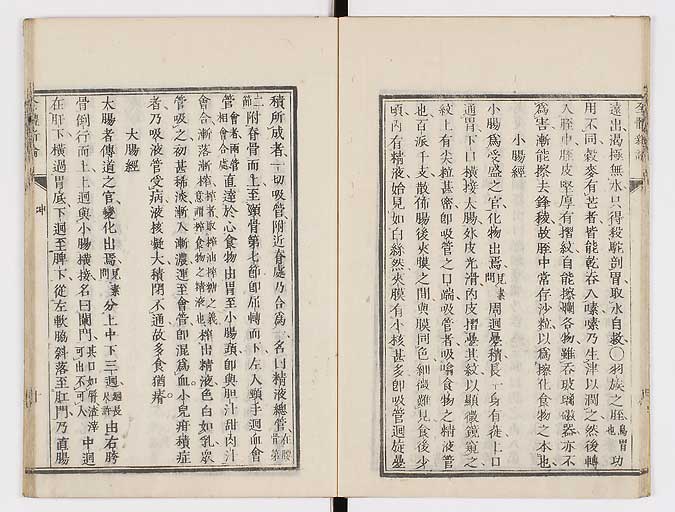 遠出渴極無水只得殺駝剖胃取水自救〇羽族之脛鳥胃也功
用不同穀麥有芒者皆能乾吞入嗉嗉乃生津以潤之然後轉
入脛中脛皮堅厚有摺紋自能擦爛各物雖吞玻璃磁器亦不
為害漸能擦去鋒稜故脛中常存沙粒以為擦化食物之本也
小腸經
小腸為受盛之官化物出焉見素問周迴疊積長一身有從上口
通胃下口橫接大腸外皮光滑內皮摺疊其紋以顯微鏡窺之
紋上有尖粒甚密卽吸管之口端吸管者吸噏食物之精液管
也百派千支散佈腸後夾膜之間與膜同色細微難見食後少
頃內有精液始見如白絲然夾膜有小核甚多卽吸管迴旋疊
積所成者一切吸管附近脊處乃合為一名曰精液總管在腰骨第
二節附脊骨而上至頸骨第七節卽屈轉而下左入頸手迴血會
管會者兩管相會合處直達於心食物由胃至小腸頭卽與胆汁甜肉汁
會合漸落漸榨榨者取榨油榨糖之義意謂榨食物之精液也榨出精液色白如乳眾
管吸之初甚稀淡漸入漸濃運至會管卽混為血小兒疳積症
者乃吸液管受病液核凝大積閉不通故多食猶瘠
大腸經
大腸者傳道之官變化出焉見素問分上中下三迴迴長尺許由右胯
骨倒行而上上迴與小腸橫接名曰闌門其口如唇渣滓可出不可入中迴
在肝下橫過胃底下迴至脾下從左軟脇斜落至肛門乃直腸
坤